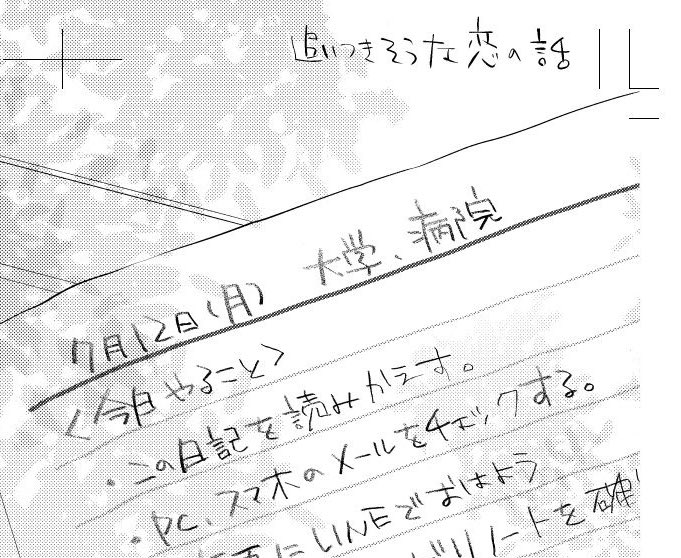 追いつきそうな恋の話
7月12日(月) 大学、病院
<今日やること>
・この日記を読みかえす。
・PC、スマホのメールをチェックする。
にLINEでおはよう
リノートを確